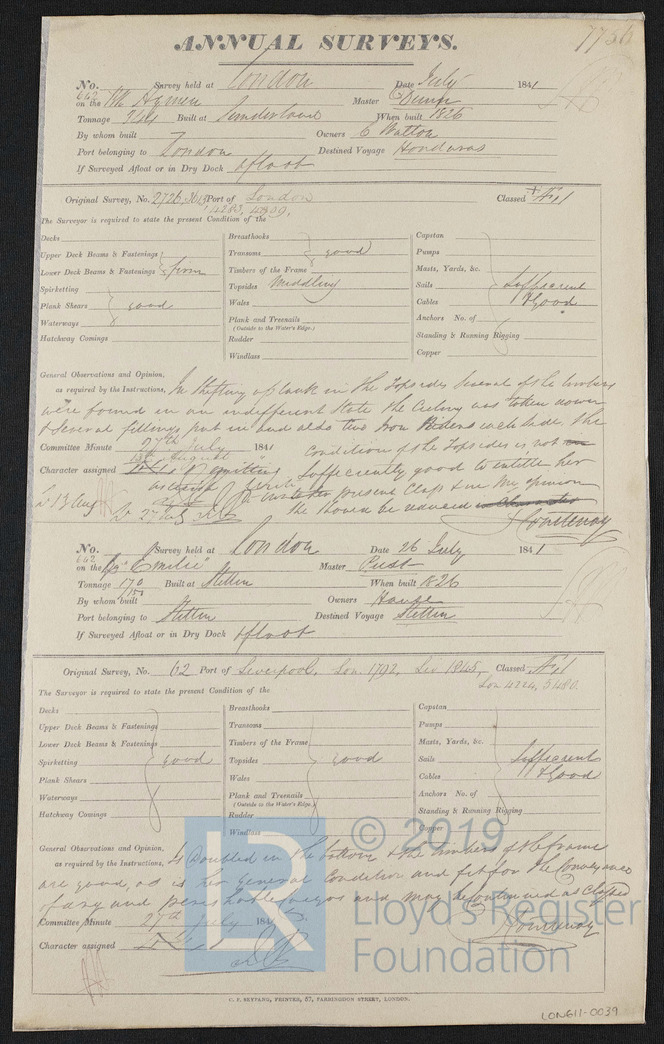 7756
ANNUAL SURVEYS.
No. 642 Survey held at London Date July 1841
on the Hymen Master Dunn
Tonnage Built at Sunderland When built 1826
By whom built Owners C Watton
Port belonging to London Destined Voyage Honduras
If Surveyed Afloat or in Dry Dock Afloat
Original Survey, No. 2726 Port of London Classed Æ 1
4283, 4809,
The Surveyor is required to state the present Condition of the
Decks
Upper Deck Beams & Fastenings
Lower Deck Beams & Fastenings firm
Spirketting
Plank Shears good
Waterways
Hatchway Comings
Breasthooks
Transoms good
Timbers of the Frame
Topsides Middling
Wales
Plank and Treenails
(Outside to the Water's Edge.)
Rudder
Windlass
Capstan
Pumps
Masts, Yards, &c.
Sails Sufficient
Cables & Good
Anchors No. of
Standing & Running Rigging
Copper
General Observations and Opinion,
as required by the Instructions, In shifting plank in the Topsides several of the timbers
were found in an indifferent state the Ceiling was taken down
& several fillings put in and also two Iron Riders each side, the
Committee Minute 27th July 1841 condition of the Topsides is not
13th August
Character assigned omitting sufficiently good to entitle her
present Class & in my opinion
Lr 13 Aug
Lr 27 July she should be reduced
J Courtenay
No. 642 Survey held at London Date 26 July 1841
on the Bg "Emilie" Master Pust
Tonnage 170 Built at Stettin When built 1826
By whom built Owners
Port belonging to Stettin Destined Voyage Stettin
If Surveyed Afloat or in Dry Dock Afloat
Original Survey, No. 62 Port of Liverpool, Lon. 1792, Liv 1845, Classed Æ 1
Lon 4224, 5480.
The Surveyor is required to state the present Condition of the
Decks
Upper Deck Beams & Fastenings
Lower Deck Beams & Fastenings
Spirketting good
Plank Shears
Waterways
Hatchway Comings
Breasthooks
Transoms
Timbers of the Frame
Topsides good
Wales
Plank and Treenails
(Outside to the Water's Edge.)
Rudder
Windlass
Capstan
Pumps
Masts, Yards, &c.
Sails Sufficient
Cables & Good
Anchors No. of
Standing & Running Rigging
Copper
General Observations and Opinion,
as required by the Instructions, Is doubled in the bottom & the timbers of the frame
are good, as is her general Condition and fit for the Conveyance
of dry and perishable cargos and may be continued as Classed
Committee Minute 27th July 184
Character assigned
J Courtenay
LR
© 2019
Lloyd's Register
Foundation
C. F. SEYFANG, PRINTER, 57, FARRINGDON STREET, LONDON.
LON611-0039